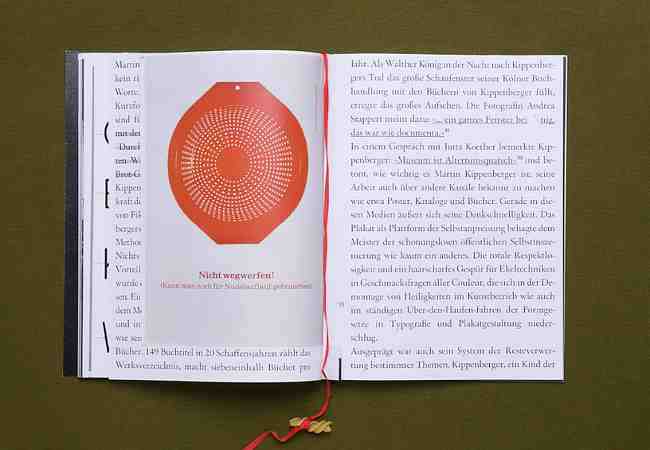 Martin
Worte.
Kurzfo
mit der
ten Wi
Brot G
Kippen
kraft de
von Fik
bergers
Method
Nichts
Vorteil
wurde
dem M
und in
wie sen
Bücher. 149 Buchtitel in 20 Schaffensjahren zählt das
Werksverzeichnis, macht siebeneinhalb Bücher pro
Nicht wegwerfen!
(Kann man noch für Nudelauflauf gebrauchen)
Jahr. Als Walther König an der Nacht nach Kippenber-
gers Tod das große Schaufenster seiner Kölner Buch-
handlung mit den Büchern von Kippenberger füllt,
erregte das großes Aufsehen. Die Fotografin Andrea
Stappert meint dazu: ein ganzes Fenster bei
das war wie documenta.‹
In einem Gespräch mit Jutta Koether bemerkte Kip-
penberger: ›Museum ist Altertumsquatsch‹ und be-
tont, wie wichtig es Martin Kippenberger ist, seine
Arbeit auch über andere Kanäle bekannt zu machen
wie etwa Poster, Kataloge und Bücher. Gerade in die-
sen Medien äußert sich seine Denkschnelligkeit. Das
Plakat als Plattform der Selbstanpreisung behagte dem
Meister der schonungslosen öffentlichen Selbstinsze-
nierung wie kaum ein anderes. Die totale Respektlo-
sigkeit und ein haarscharfes Gespür für Ekeltechniken
in Geschmacksfragen aller Couleur, die sich in der De-
montage von Heiligkeiten im Kunstbetrieb wie auch
im ständigen Über-den-Haufen-fahren der Formge-
setze in Typografie und Plakatgestaltung nieder-
schlug.
Ausgeprägt war auch sein System der Resteverwer-
tung bestimmter Themen. Kippenberger, ein Kind der